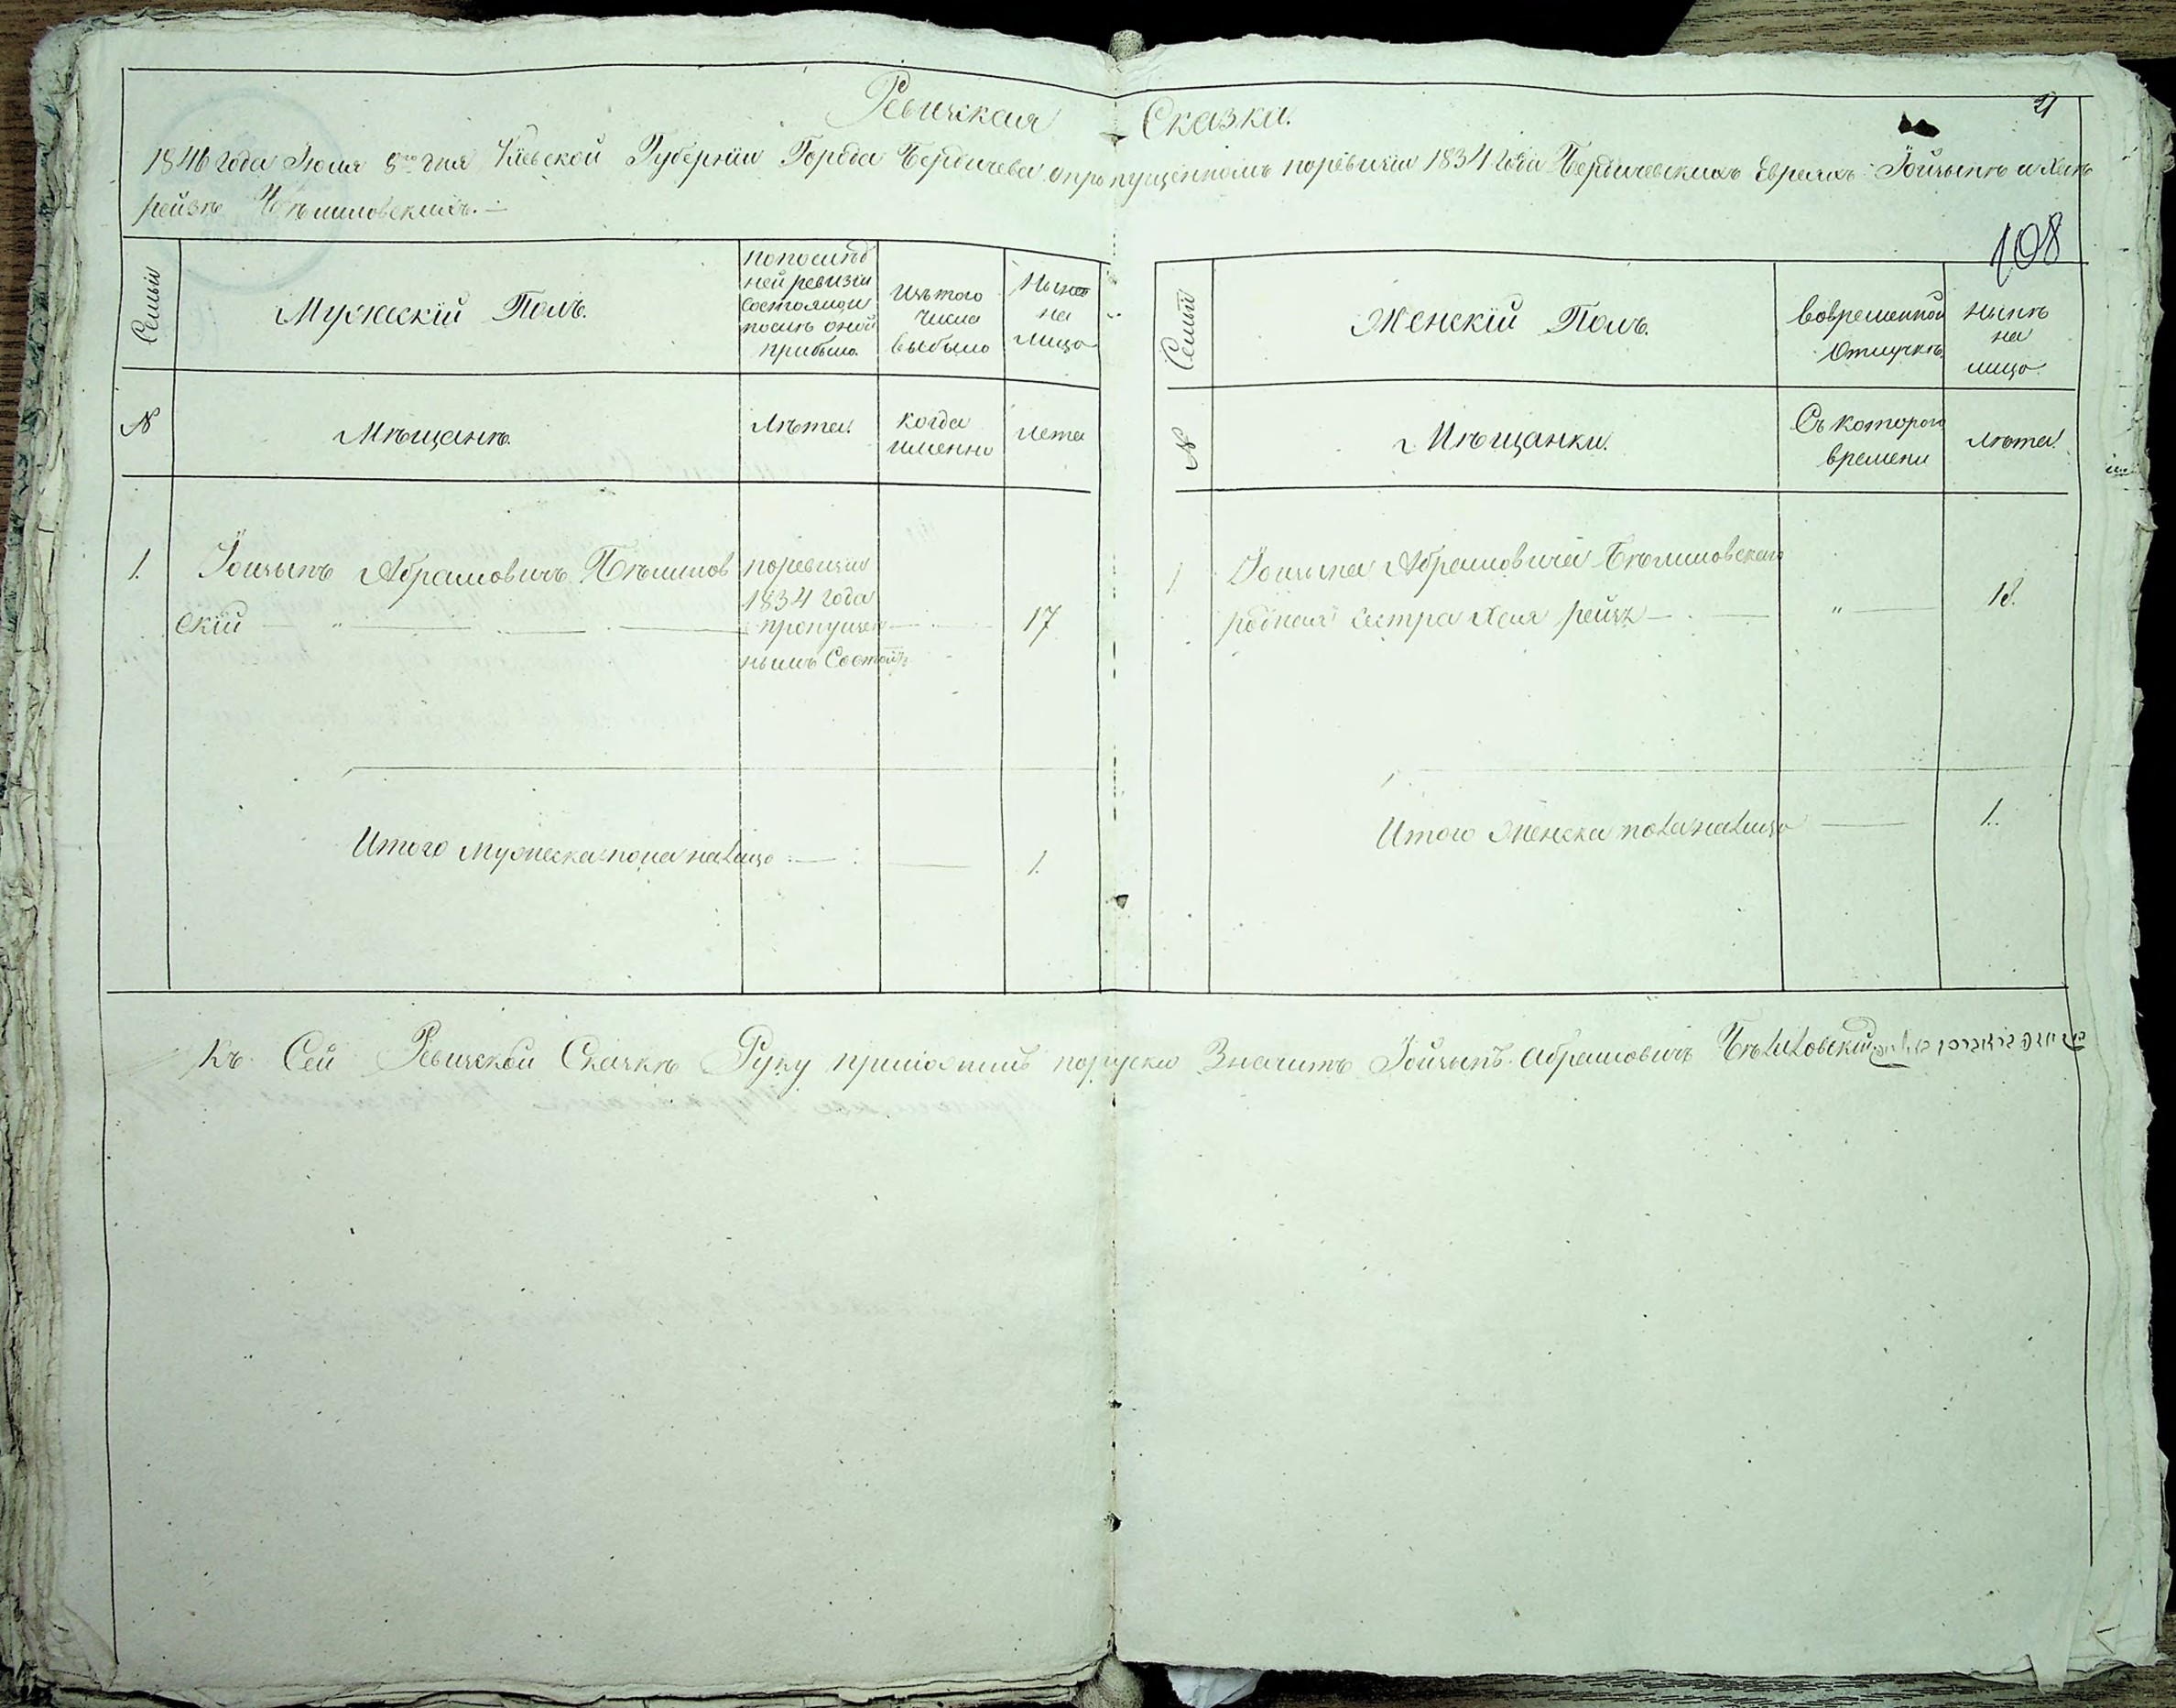 21
Ревизская Сказка.
1846 года Июля 8го дня Кіевской Губерніи Города Бердичева опропущенномъ поревизіи 1834 года Бердичевскихъ Евреяхъ Іойзыпѣ и Хаѣ
рейзѣ Бѣлиловскихъ.
108
Семьи
Мужескій Полъ.
попослѣд
ней ревизіи
Состояло и
послѣ оной
прибыло.
Изъ того
числа
выбыло
Ныне
на
лицо
Семьи
Женскій Полъ.
вовременной
Отлучкѣ
Нынѣ
на
лицо.
№
Мѣщанѣ.
Лѣта.
когда
именно
Лета
№
Мѣщанки.
Съ которого
времени
Лѣта.
1.
Іойзыпъ Абрамовичъ Бѣлилов
скій
поревизіи
1834 года
пропущен
нымъ Состоитъ
17
1
Іойзыпа Абрамовича Бѣлиловскаго
родная Сестра Хая рейза
"
18.
Итого Мужеска пола налицо
1.
Итого Женска пола налицо
1.
Къ Сей Ревизской Сказкѣ Руку приложилъ поруски Значитъ Іойзыпъ Абрамовичъ Бѣлиловскій